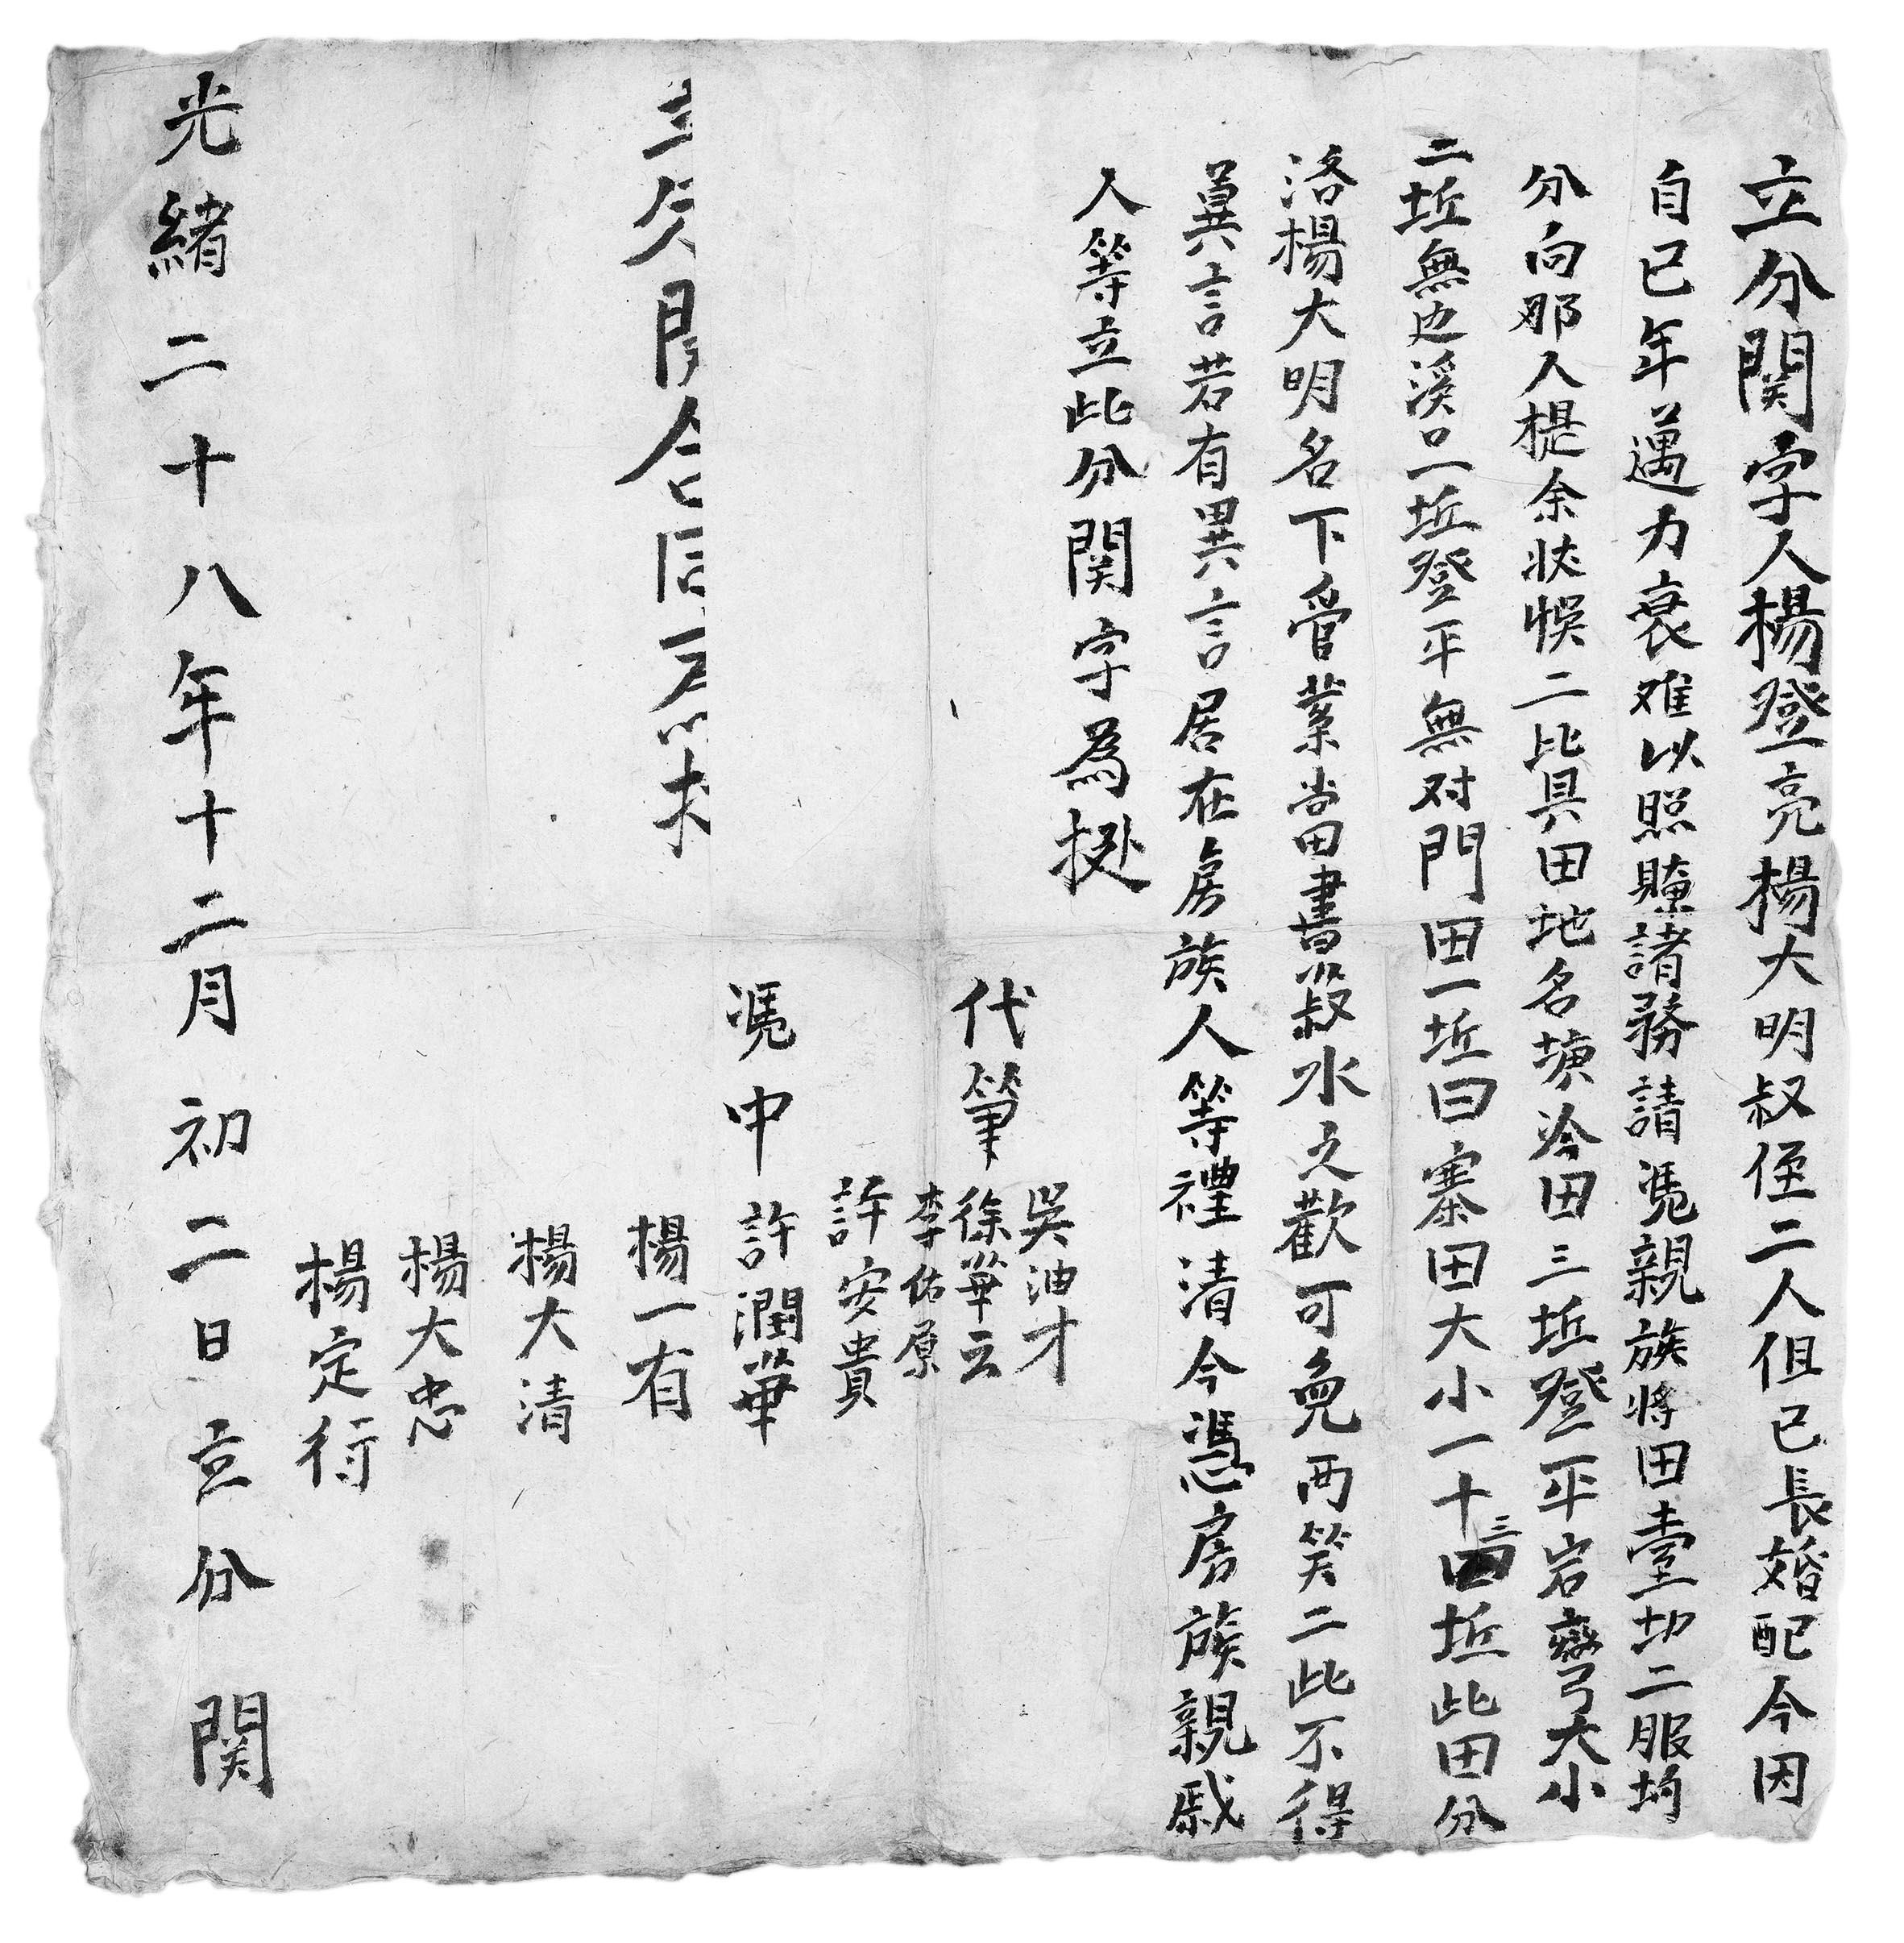 立分関字人楊登亮楊大明叔侄二人但已長婚配今因
自已年邁力衰难以照賖諸務請凴親族將田壹切二服均
分向耶人提余状悞二比具田地名塘冷田三坵登平岩彎大小
二坵無边溪口一坵登平無对門田一坵曰寨田大小一十三坵此田分
洛楊大明名下管業當書菽水之歡可免両笑二此不得
異言若有異言居在房族人等禮清今憑房族親戚
人等立此分関字為據
代筆 吳油才
徐華云
李佑原
許安貴
凴中 許潤華
楊一有
楊大清
楊大忠
楊定行
光緒二十八年十二月初二日立分関